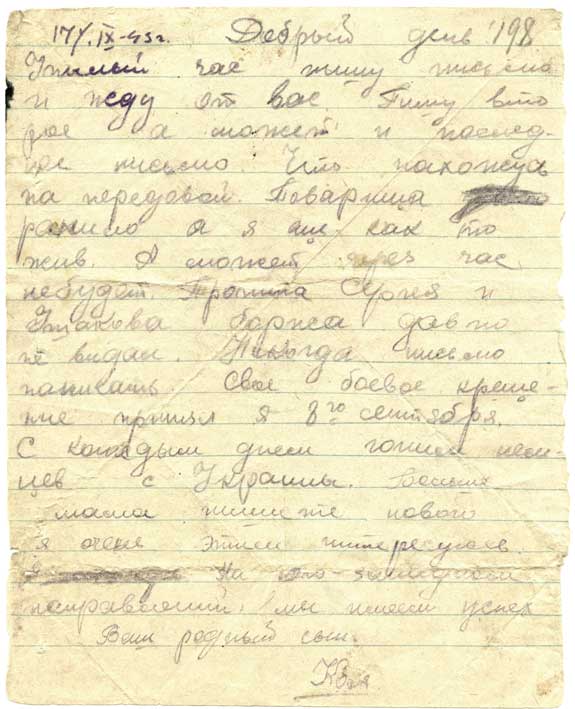 17/IX-43г. Добрый день 198
час пишу письмо
и жду от вас. Пишу вто
рое а может и послед-
нее письмо Что нахожусь
на передовой. Товарища
ранило а я ещё как то
жив. А может через час
небудет. Сергея и
Бориса давно
не видал. Некогда письмо
написать. Свое боевое креще-
ние принял я 8го сентября.
С каждым днем гоним нем-
цев с Украины. 
мама пишите нового
я очень этим интересуюсь
На юго-западном
направлений. мы имеем успех
Ваш родный сын.
Коля